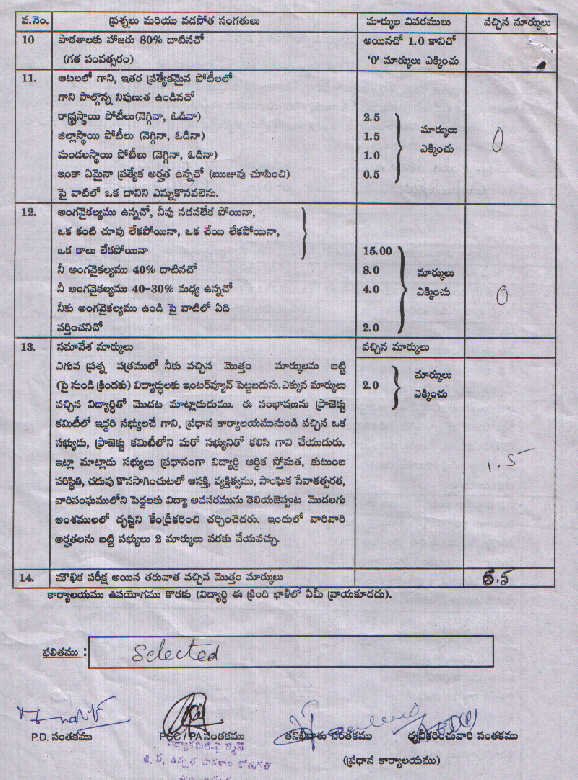 వ.నెం. ప్రశ్నలు మరియు వడపోత సంగతులు మార్కుల వివరములు వచ్చిన మార్కులు
10 పాఠశాలకు హాజరు 80% దాటినచో అయినచో 1.0 కానిచో
(గత సంవత్సరం) '0' మార్కులు ఎక్కించు
11. ఆటలలో గాని, ఇతర ప్రత్యేకమైన పోటీలలో
గాని పాల్గొన్న నిపుణుత ఉండినచో
రాష్ట్రస్థాయి పోటీలు(నెగ్గినా, ఓడినా) 2.5 మార్కులు 0
జిల్లాస్థాయి పోటీలు (నెగ్గినా, ఓడినా) 1.5 ఎక్కించు
మండలస్థాయి పోటీలు (నెగ్గినా, ఓడినా) 1.0
ఇంకా ఏమైనా ప్రత్యేక అర్హత ఉన్నచో (ఋజువు చూపించి) 0.5
పై వాటిలో ఒక దానిని ఎన్నుకొనవలెను.
12. అంగవైకల్యము ఉన్నచో, నీవు నడవలేక పోయినా,
ఒక కంటి చూపు లేకపోయినా, ఒక చేయి లేకపోయినా,
ఒక కాలు లేకపోయినా 15.00
నీ అంగవైకల్యము 40% దాటినచో 8.0 మార్కులు
నీ అంగవైకల్యము 40-30% మధ్య ఉన్నచో 4.0 ఎక్కించు 0
నీకు అంగవైకల్యము ఉండి పై వాటిలో ఏది
వర్తించనిచో 2.0
13. సమావేశ మార్కులు వచ్చిన మార్కులు
ఎగువ ప్రశ్న పత్రములో నీకు వచ్చిన మొత్తం మార్కులను బట్టి మార్కులు
(పై నుండి క్రిందకు) విద్యార్థులకు ఇంటర్వ్యూన్ పెట్టబడును. ఎక్కువ మార్కులు 2.0 ఎక్కించు
వచ్చిన విద్యార్థితో మొదట మాట్లాడుదుము. ఈ సంభాషణను ప్రాజెక్టు
కమిటీలో ఇద్దరి సభ్యులచే గాని, ప్రధాన కార్యాలయమునుండి వచ్చిన ఒక
సభ్యుడు, ప్రాజెక్టు కమిటీలోని మరో సభ్యునితో కలిసి గాని చేయుదురు.
ఇట్లా మాట్లాడు సభ్యులు ప్రధానంగా విద్యార్థి ఆర్థిక స్తోమత, కుటుంబ 1.5
పరిస్థితి, చదువు కొనసాగించుటలో ఆసక్తి, వ్యక్తిత్వము, సాంఘిక సేవాతత్పరత,
వారిసంఘములోని పెద్దలకు విద్యా అవసరమును తెలియజెప్పుట మొదలగు
అంశములలో దృష్టిని కేంద్రీకరించి చర్చించెదరు. ఇందులో వారివారి
అర్హతలను బట్టి సభ్యులు 2 మార్కులు వరకు వేయవచ్చు.
14. మౌఖిక పరీక్ష అయిన తరువాత వచ్చిన మొత్తం మార్కులు
కార్యాలయము ఉపయోగము కొరకు (విద్యార్థి ఈ క్రింది ఖాళీలో ఏమీ వ్రాయకూడదు).
ఫలితము : Selected
P.D. సంతకము PCC / PA సంతకము తనిఖీదారు సంతకము ధృవీకరించువారి సంతకము
(ప్రధాన కార్యాలయం)